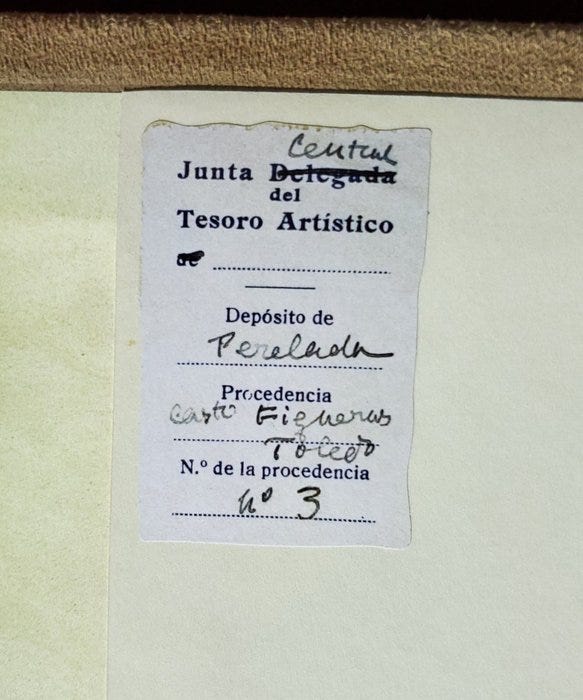 Central
Junta Delegada
del
Tesoro Artístico
de
Depósito de
Perelada
Procedencia
Casto Figueras
Toledo
N.º de la procedencia
nº 3